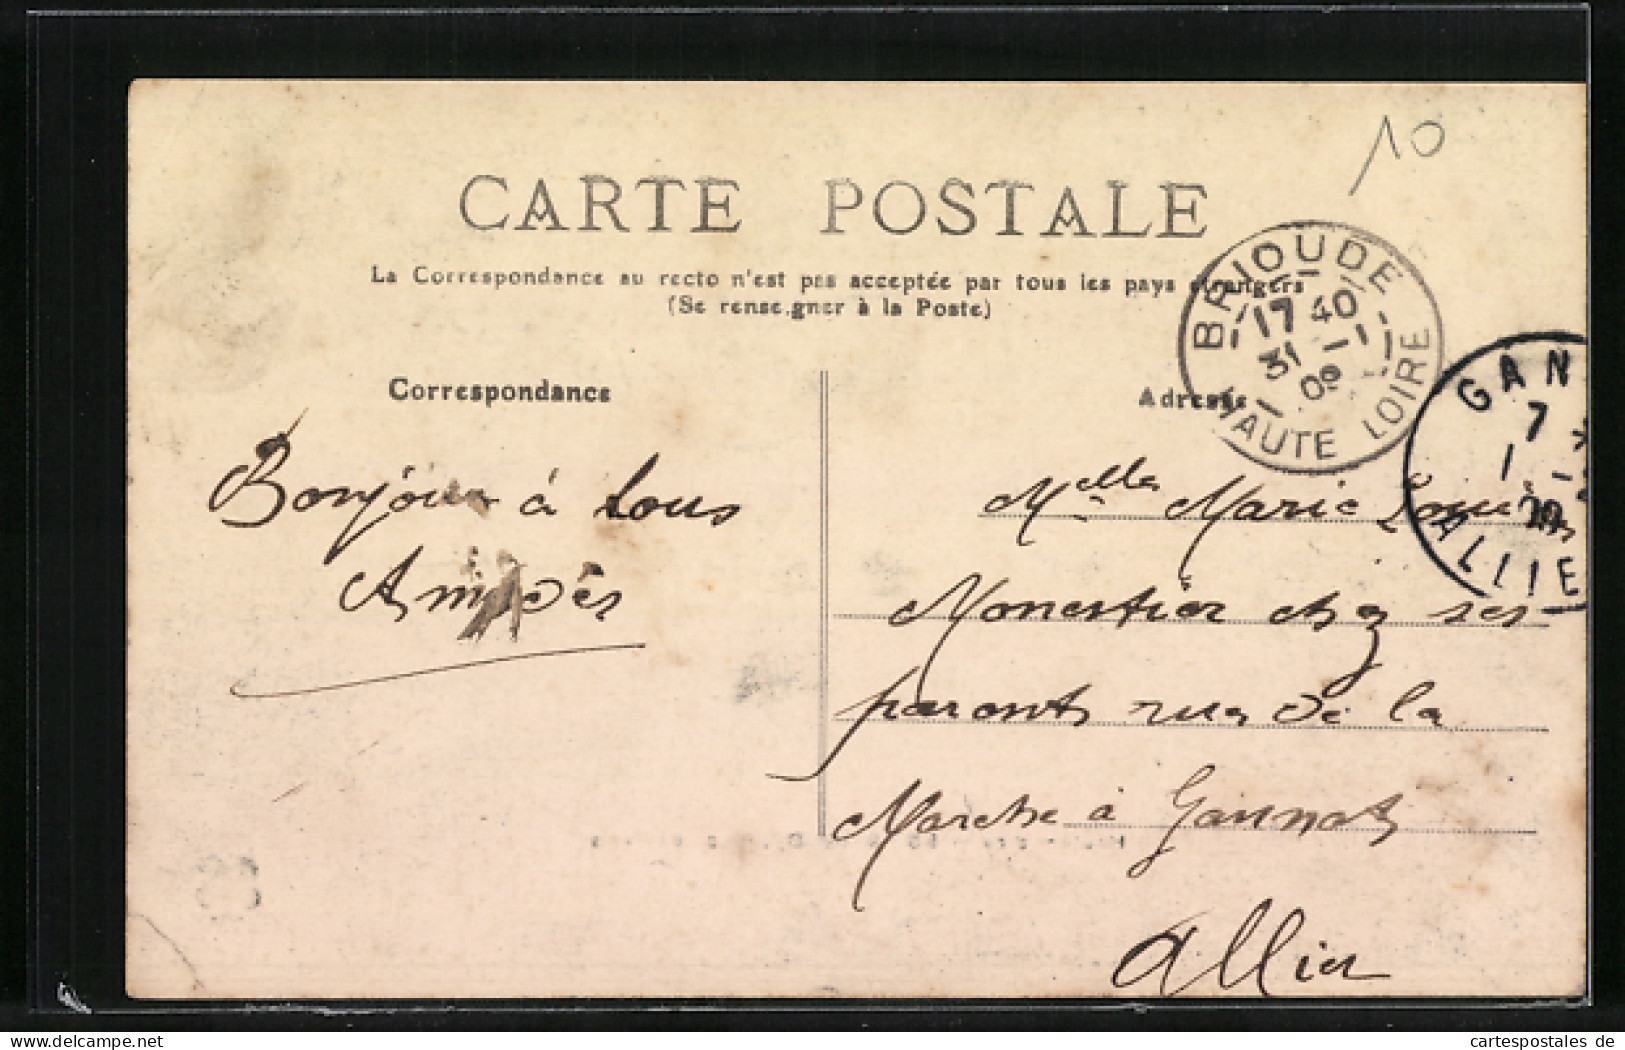 10
CARTE POSTALE
La Correspondance au recto n'est pas acceptée par tous les pays étrangers
(Se renseigner à la Poste)
BRIOUDE
17 40
31 - 1
09
HAUTE LOIRE
GAN
7
1 -
ALLIE
Correspondance
Adresse
Bonjour à tous
Amédée
Melle Marie
Monestier chez ses
parents rue de la
Marche à Gannat
Allier
www.delcampe.net
cartespostales de